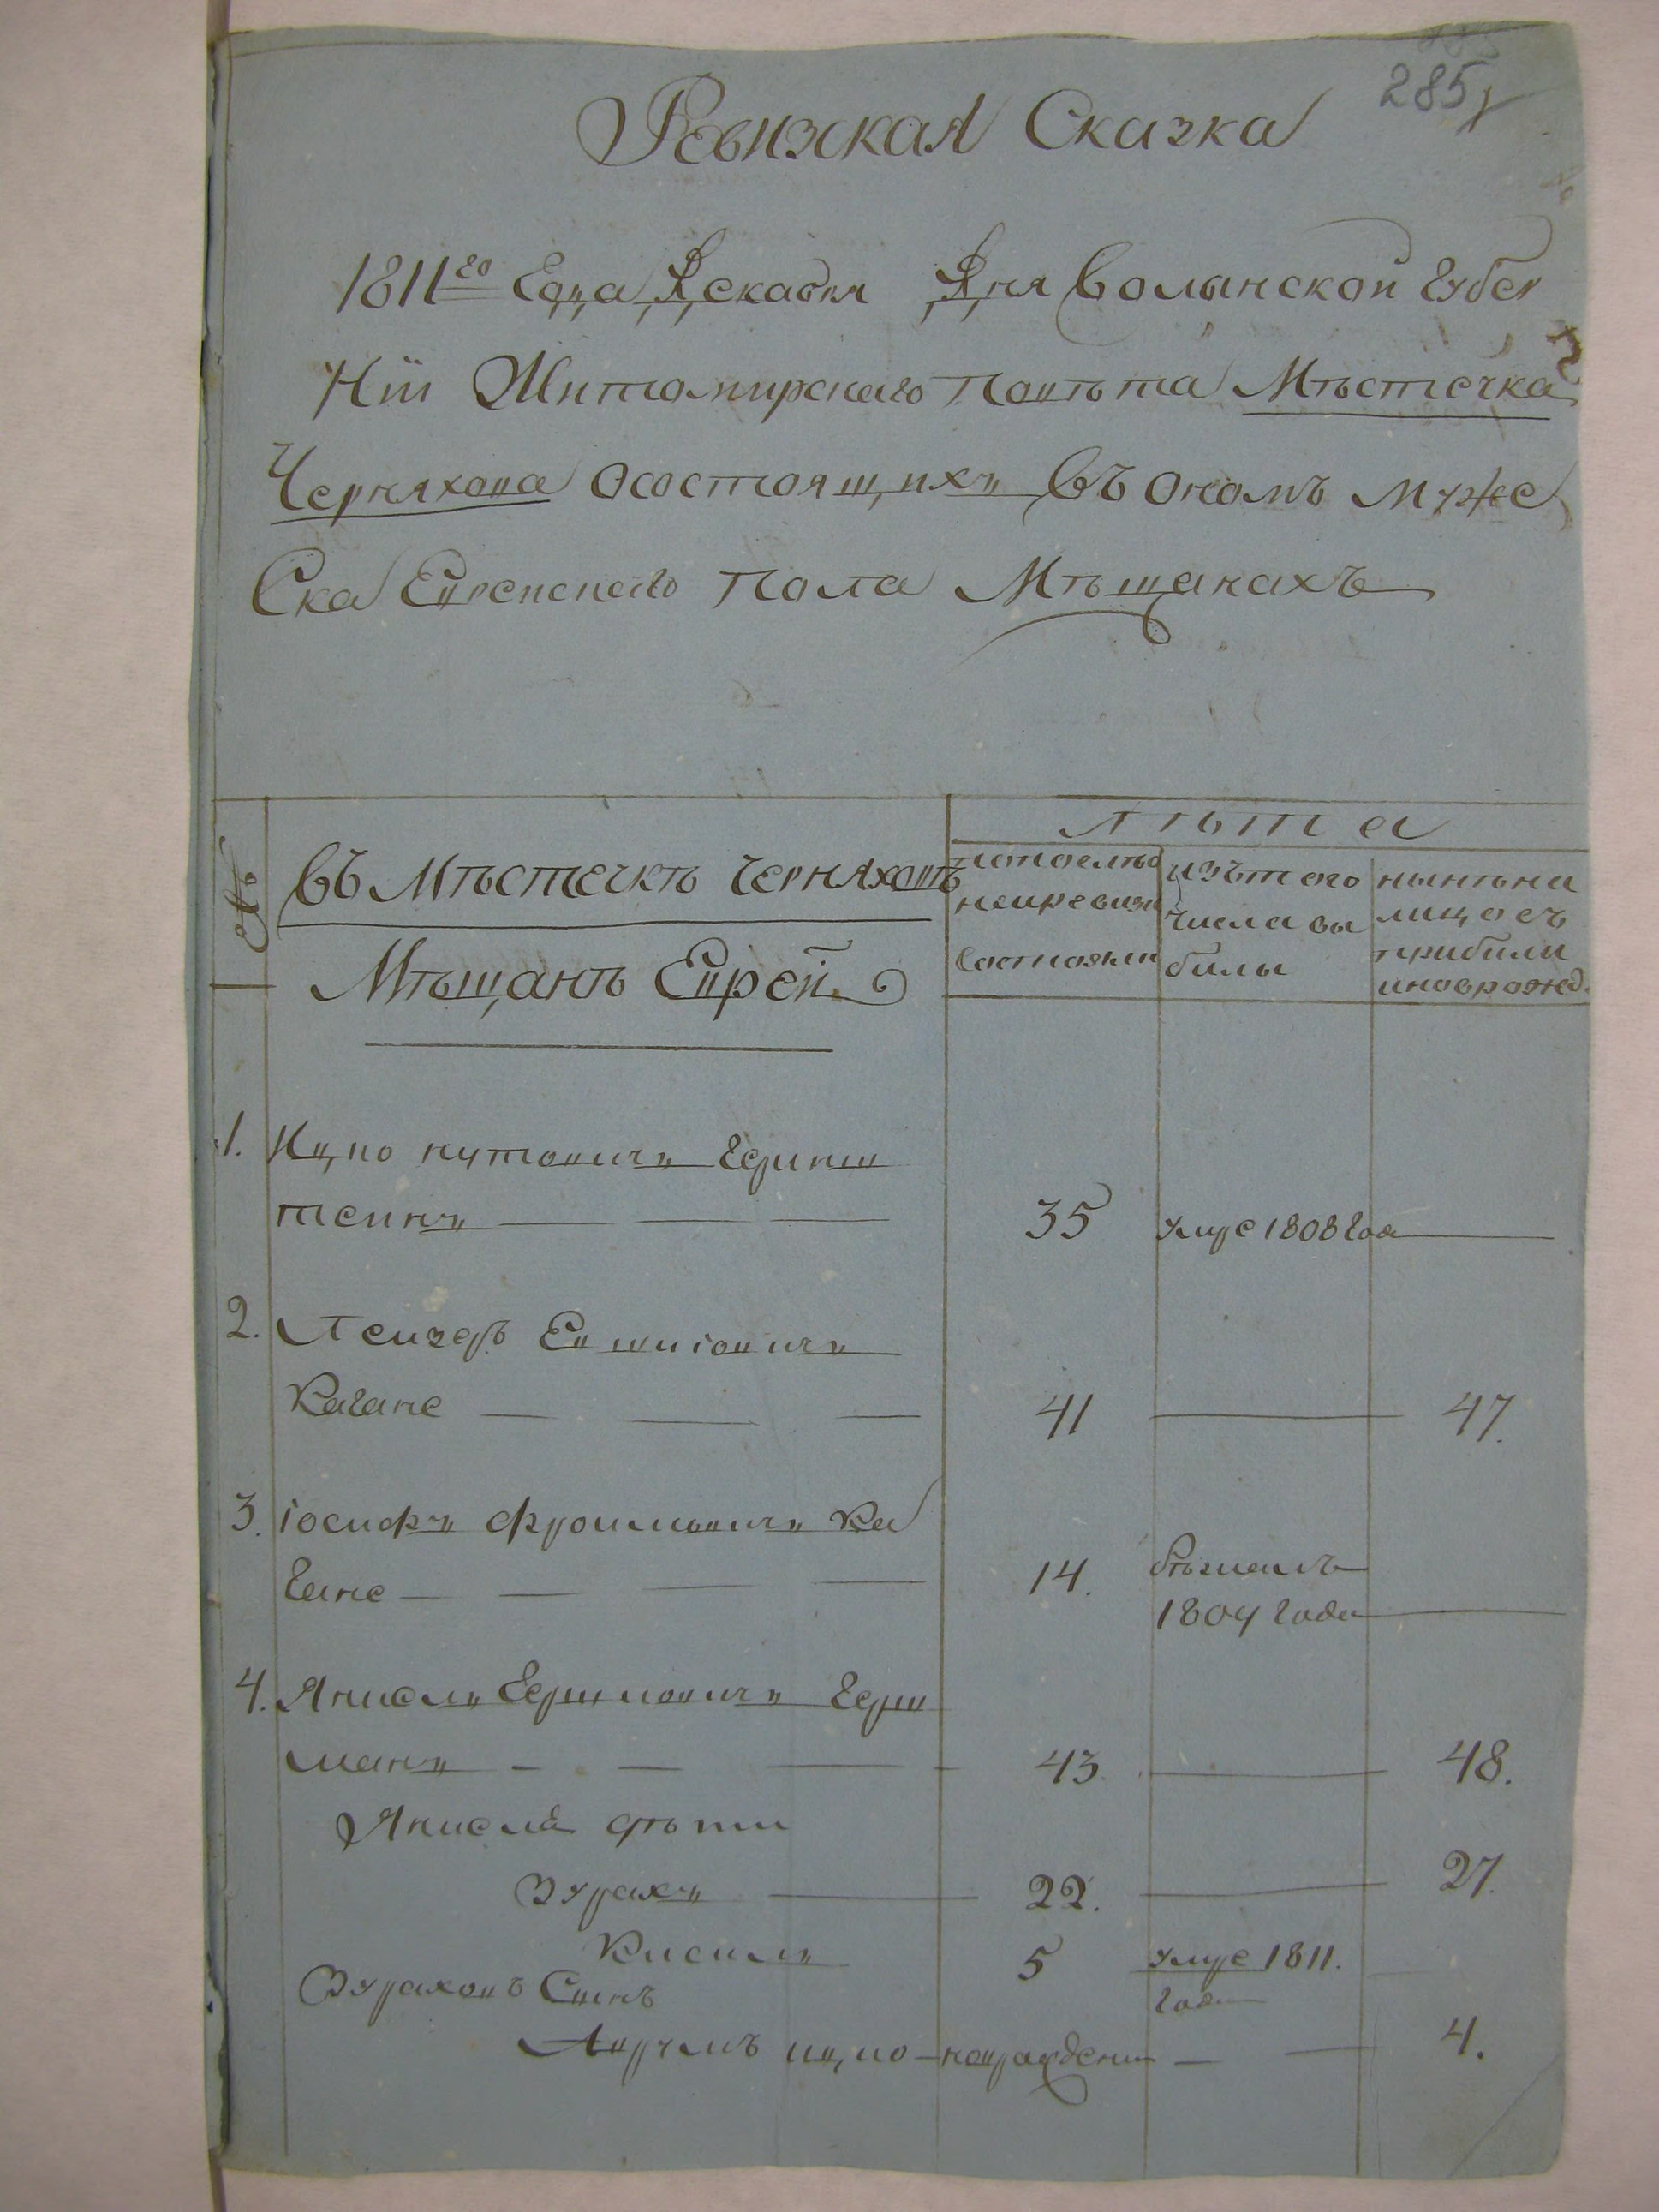 285
Ревизкая Сказка
1811го Года Декабря Дня Волынской Губер
Нїи Житомирскаго Повѣта Мѣстечка
Черняхова осостоящихъ въ ономъ муже
Ска Еврейскаго пола Мѣщанахъ
№
Лѣта
въ Мѣстечкѣ Черняховѣ
Мѣщанъ Еврей
попослѣд
ней ревизи
Состояли
изътого
числа вы
были
нынѣ на
лицо съ
прибыли
иноврожд.
1. Ицко Герш
тейнъ 35 умре 1808 Года
2. Лейзеръ
Кагане 41 47.
3. Іосифъ Фроимовичъ Ка
гане 14. бѣжалъ
1804 года
4. Янкель Гершковичъ Герш
манъ 43. 48.
Янкеля дѣти
Зурахъ 22. 27.
Кисиль 5 умре 1811.
года
Зураховъ Сынъ
Аврумъ Ицко новрожденъ 4.